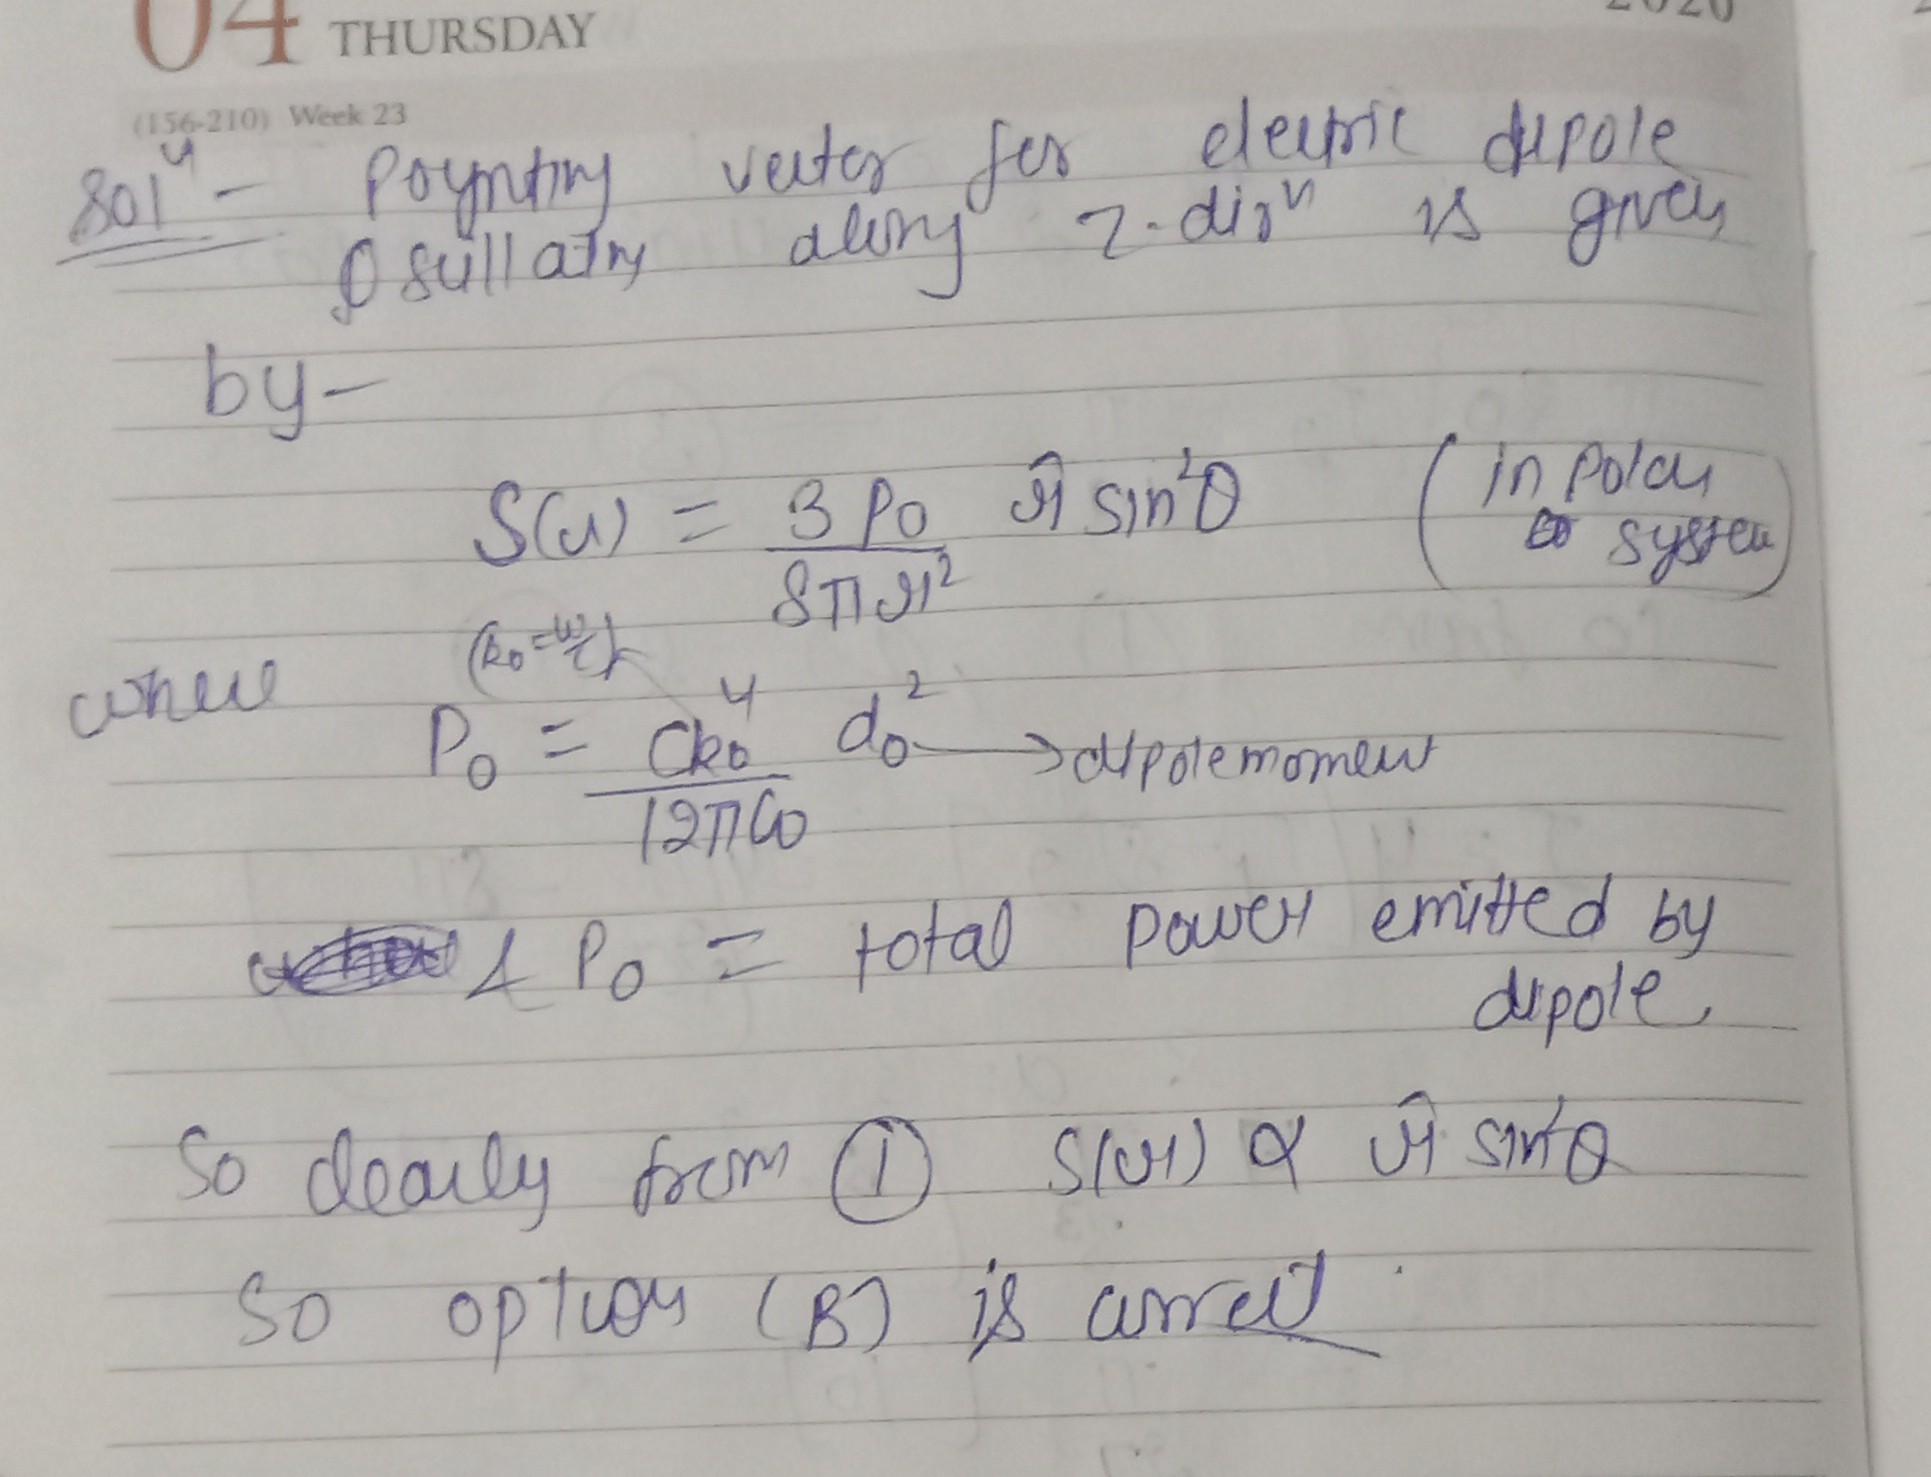 04 THURSDAY
2020
(156-210) Week 23
Solⁿ - Poynting vector for electric dipole
Oscillating along z-dirⁿ is given
by-
S(r) = 3 P₀ / 8πr² r̂ sin²θ (in polar system)
(k₀ = ω/c)
where P₀ = ck₀⁴ / 12πε₀ d₀² → dipole moment
& P₀ = total power emitted by
dipole
So clearly from ① S(r) ∝ r̂ sin²θ
So option (B) is correct